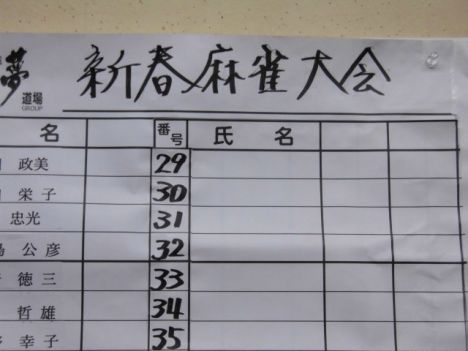 夢 道場 GROUP 新春麻雀大会
名 番号 氏名
政美 29
栄子 30
忠光 31
公彦 32
徳三 33
哲雄 34
幸子 35